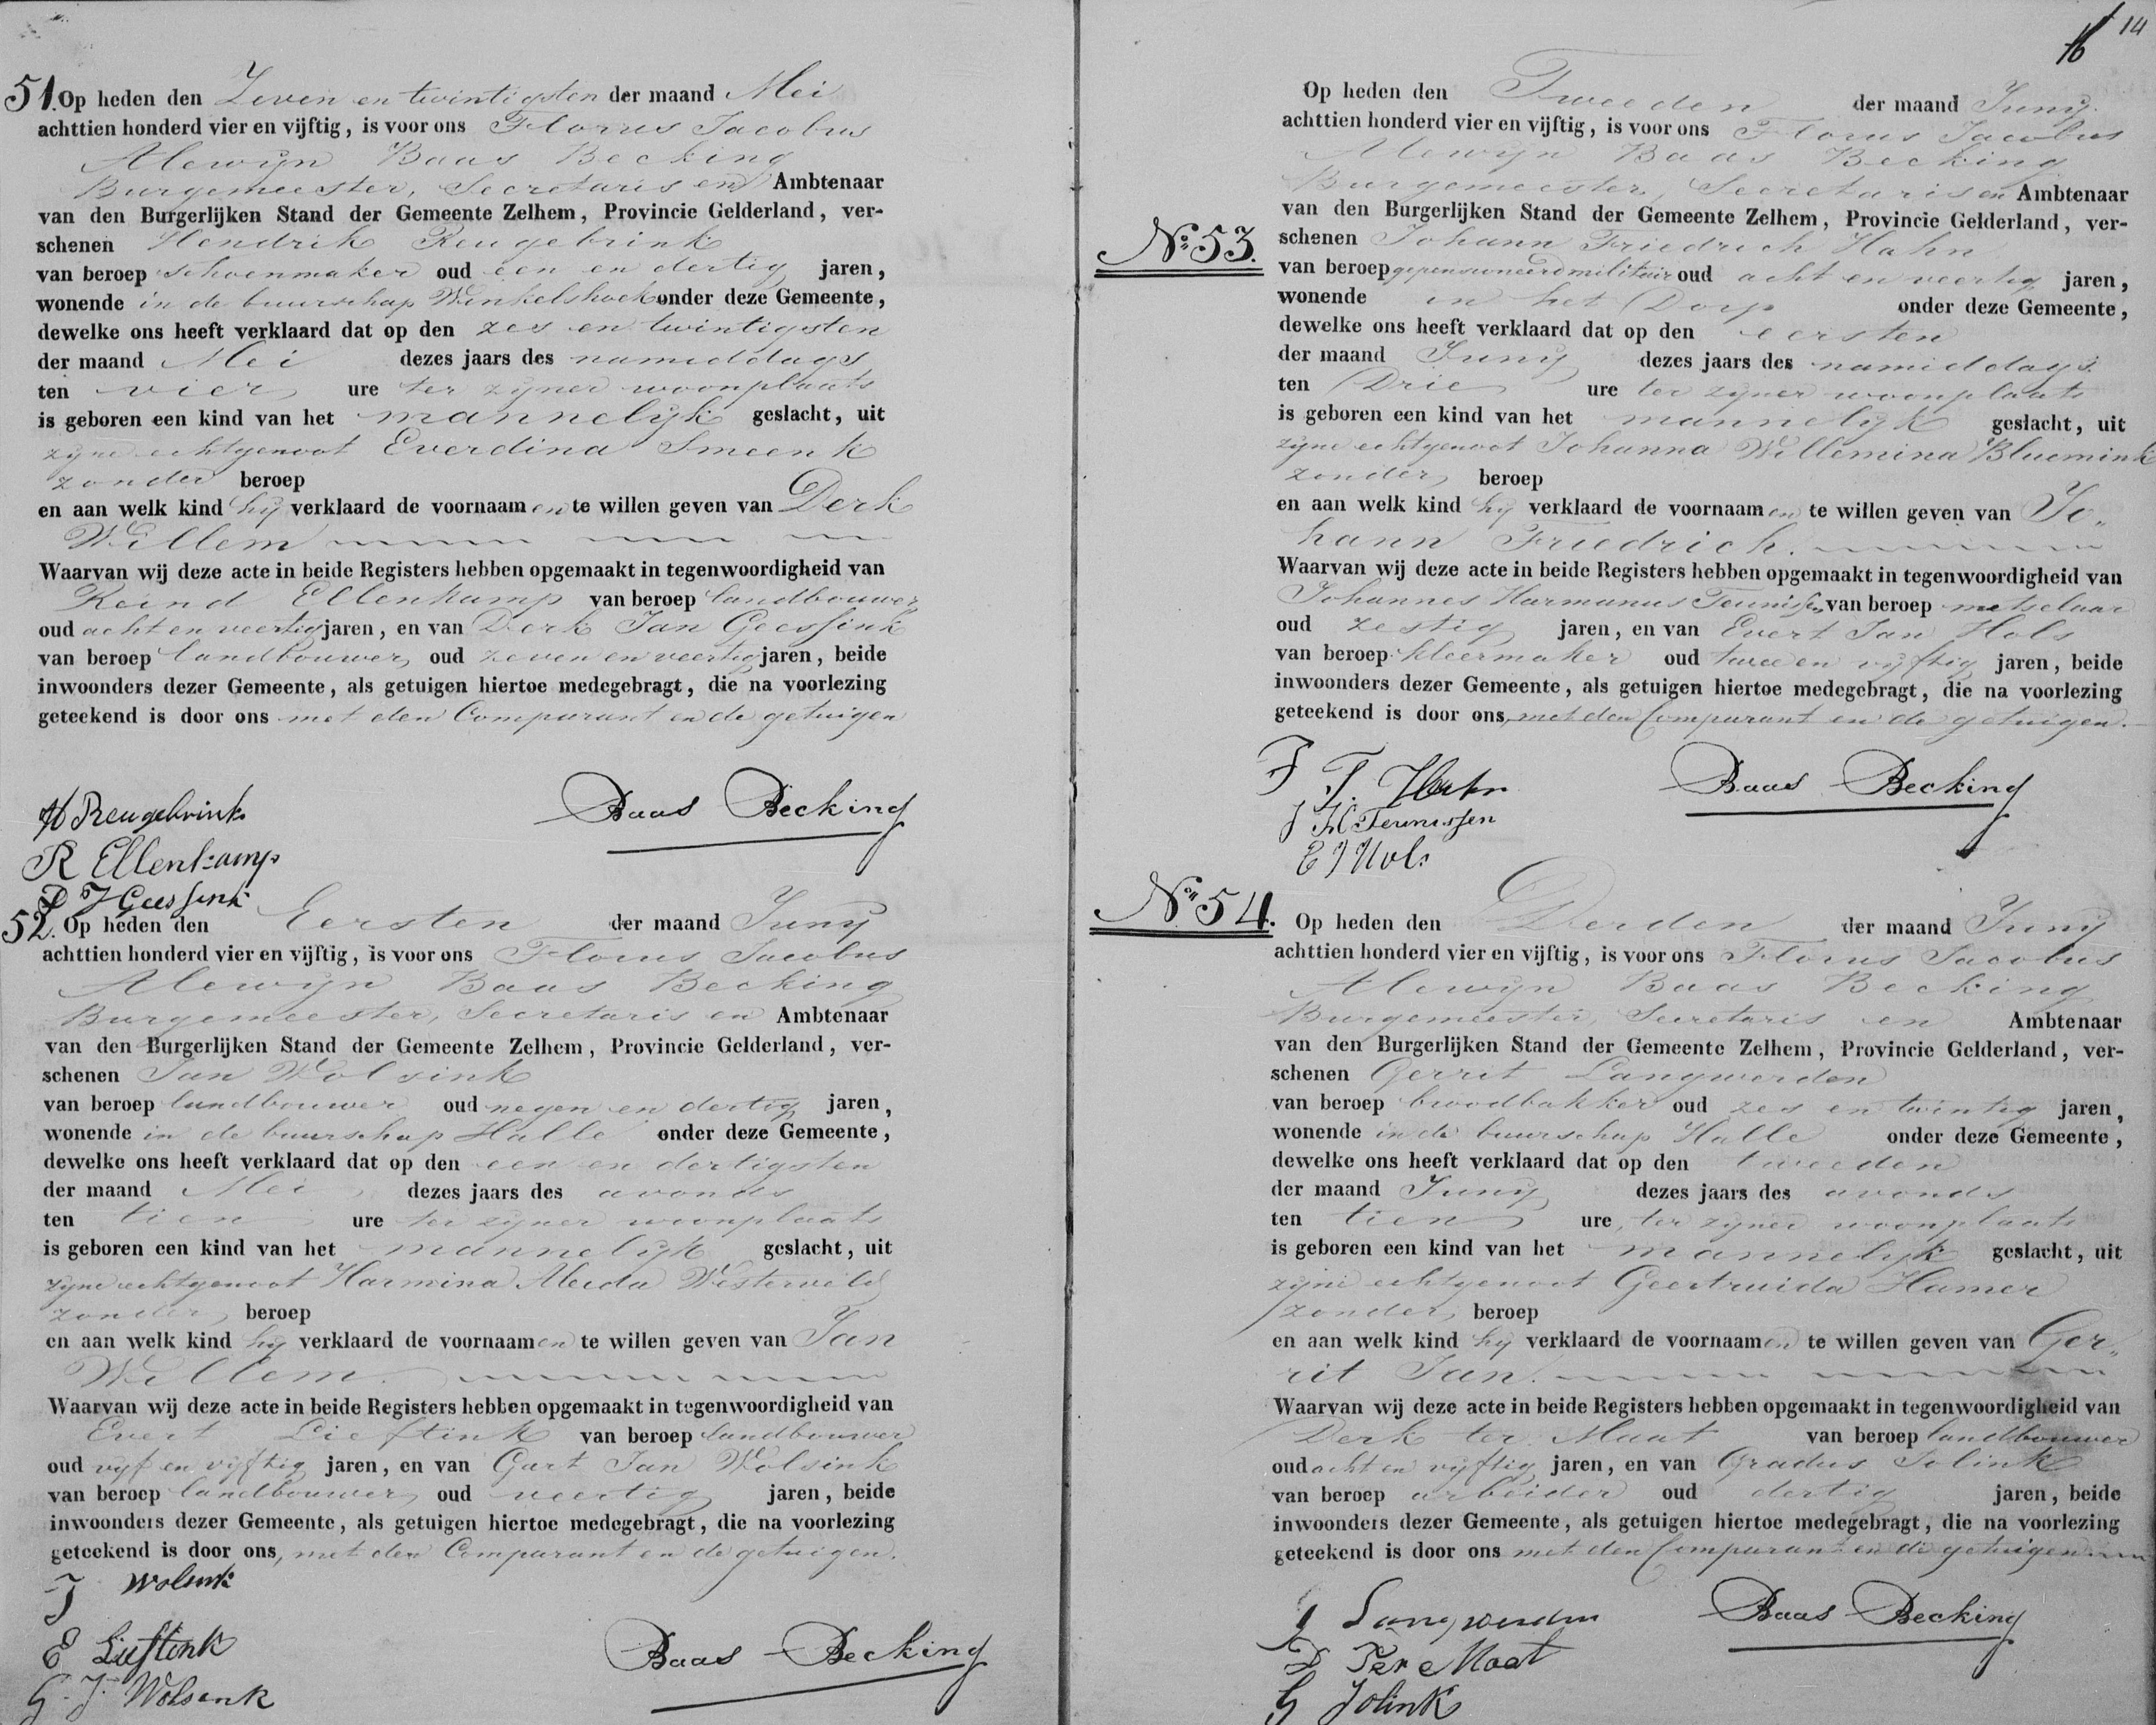 51. Op heden den Zeven en twintigsten der maand Mei
achttien honderd vier en vijftig, is voor ons Florus Jacobus
Alewijn Baas Becking
Burgemeester, Secretaris en Ambtenaar
van den Burgerlijken Stand der Gemeente Zelhem, Provincie Gelderland, ver-
schenen Hendrik Reugebrink
van beroep schoenmaker oud een en dertig jaren,
wonende in de buurschap Winkelshoek onder deze Gemeente,
dewelke ons heeft verklaard dat op den zes en twintigsten
der maand Mei dezes jaars des namiddags
ten vier ure ter zijner woonplaats
is geboren een kind van het mannelijk geslacht, uit
zijne echtgenoot Everdina Smeenk
zonder beroep
en aan welk kind hij verklaard de voornaamen te willen geven van Derk
Willem
Waarvan wij deze acte in beide Registers hebben opgemaakt in tegenwoordigheid van
Reind Ellenkamp van beroep landbouwer
oud acht en veertig jaren, en van Derk Jan Geessink
van beroep landbouwer oud zeven en veertig jaren, beide
inwoonders dezer Gemeente, als getuigen hiertoe medegebragt, die na voorlezing
geteekend is door ons met den Comparant en de getuigen
H Reugebrink Baas Becking
R Ellenkamp
D J Geessink
52. Op heden den Eersten der maand Junij
achttien honderd vier en vijftig, is voor ons Florus Jacobus
Alewijn Baas Becking
Burgemeester, Secretaris en Ambtenaar
van den Burgerlijken Stand der Gemeente Zelhem, Provincie Gelderland, ver-
schenen Jan Wolsink
van beroep landbouwer oud negen en dertig jaren,
wonende in de buurschap Halle onder deze Gemeente,
dewelke ons heeft verklaard dat op den een en dertigsten
der maand Mei dezes jaars des avonds
ten tien ure ter zijner woonplaats
is geboren een kind van het mannelijk geslacht, uit
zijne echtgenoot Harmina Aleida Westerveld
zonder beroep
en aan welk kind hij verklaard de voornaamen te willen geven van Jan
Willem.
Waarvan wij deze acte in beide Registers hebben opgemaakt in tegenwoordigheid van
Evert Lieftink van beroep landbouwer
oud vijf en vijftig jaren, en van Gart Jan Wolsink
van beroep landbouwer oud veertig jaren, beide
inwoonders dezer Gemeente, als getuigen hiertoe medegebragt, die na voorlezing
geteekend is door ons, met den Comparant en de getuigen.
J Wolsink
E Lieftink Baas Becking
G. J. Wolsenk
14
Op heden den Tweeden der maand Junij
achttien honderd vier en vijftig, is voor ons Florus Jacobus
Alewijn Baas Becking
Burgemeester, Secretaris en Ambtenaar
van den Burgerlijken Stand der Gemeente Zelhem, Provincie Gelderland, ver-
No 53. schenen Johann Friedrich Hahn
van beroep gepensioneerd militair oud acht en veertig jaren,
wonende in het Dorp onder deze Gemeente,
dewelke ons heeft verklaard dat op den eersten
der maand Junij dezes jaars des namiddags
ten Drie ure ter zijner woonplaats
is geboren een kind van het mannelijk geslacht, uit
zijne echtgenoot Johanna Willemina Bluemink
zonder beroep
en aan welk kind hij verklaard de voornaamen te willen geven van Jo„
hann Friedrich.
Waarvan wij deze acte in beide Registers hebben opgemaakt in tegenwoordigheid van
Johannes Harmanus Teunissen van beroep metselaar
oud zestig jaren, en van Evert Jan Hols
van beroep kleermaker oud twee en vijftig jaren, beide
inwoonders dezer Gemeente, als getuigen hiertoe medegebragt, die na voorlezing
geteekend is door ons, met den Comparant en de getuigen.
J F. Hahn Baas Becking
J H Teunissen
E J Hols
No 54. Op heden den Derden der maand Junij
achttien honderd vier en vijftig, is voor ons Florus Jacobus
Alewijn Baas Becking
Burgemeester, Secretaris en Ambtenaar
van den Burgerlijken Stand der Gemeente Zelhem, Provincie Gelderland, ver-
schenen Gerrit Langwerden
van beroep broodbakker oud zes en twintig jaren,
wonende in de buurschap Halle onder deze Gemeente,
dewelke ons heeft verklaard dat op den tweeden
der maand Junij dezes jaars des avonds
ten tien ure, ter zijner woonplaats
is geboren een kind van het mannelijk geslacht, uit
zijne echtgenoot Geertruida Hamer
zonder beroep
en aan welk kind hij verklaard de voornaamen te willen geven van Ger„
rit Jan.
Waarvan wij deze acte in beide Registers hebben opgemaakt in tegenwoordigheid van
Derk ter Maat van beroep landbouwer
oud acht en vijftig jaren, en van Gradus Jolink
van beroep arbeider oud dertig jaren, beide
inwoonders dezer Gemeente, als getuigen hiertoe medegebragt, die na voorlezing
geteekend is door ons met den Comparant en de getuigen
G Langwerden Baas Becking
D Ter Maat
G Jolink